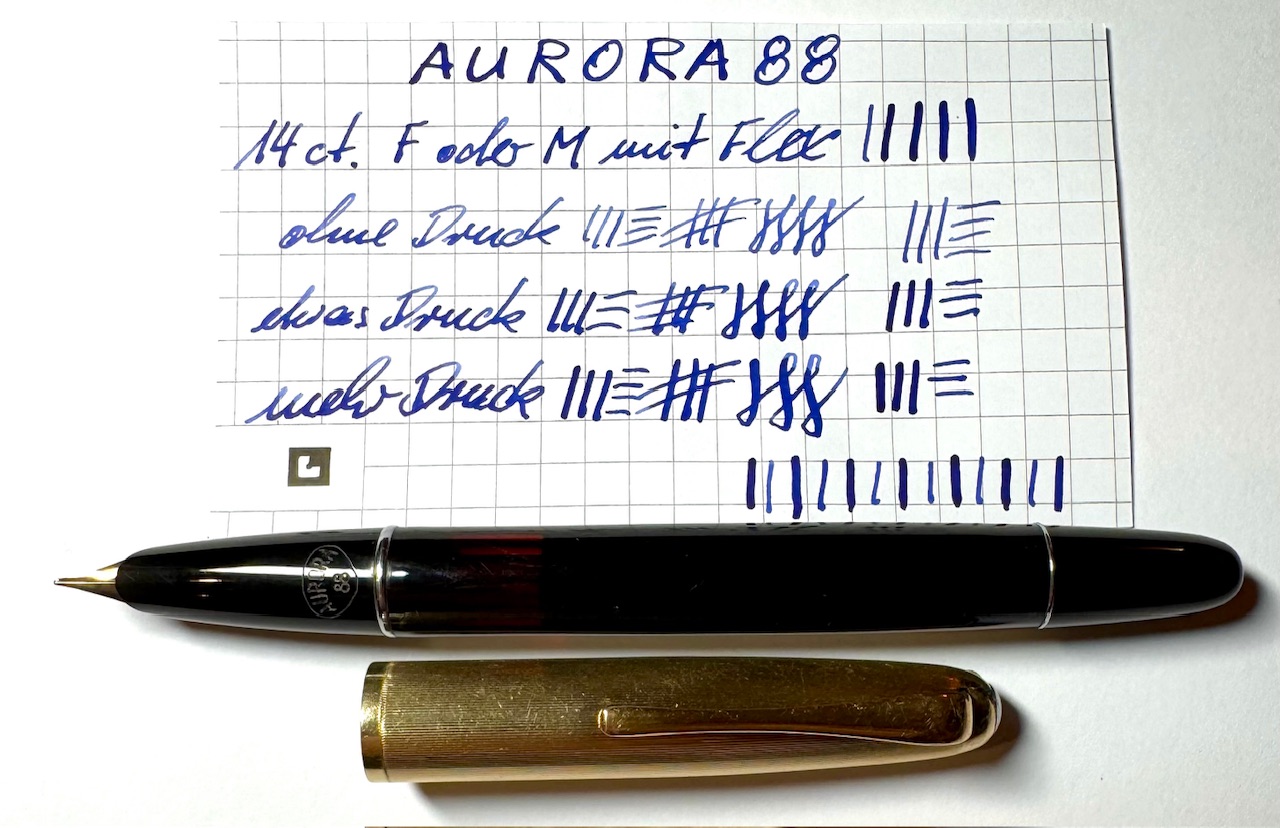 AURORA 88
14 ct. F oder M mit Flex
ohne Druck
etwas Druck
mehr Druck
AURORA
88